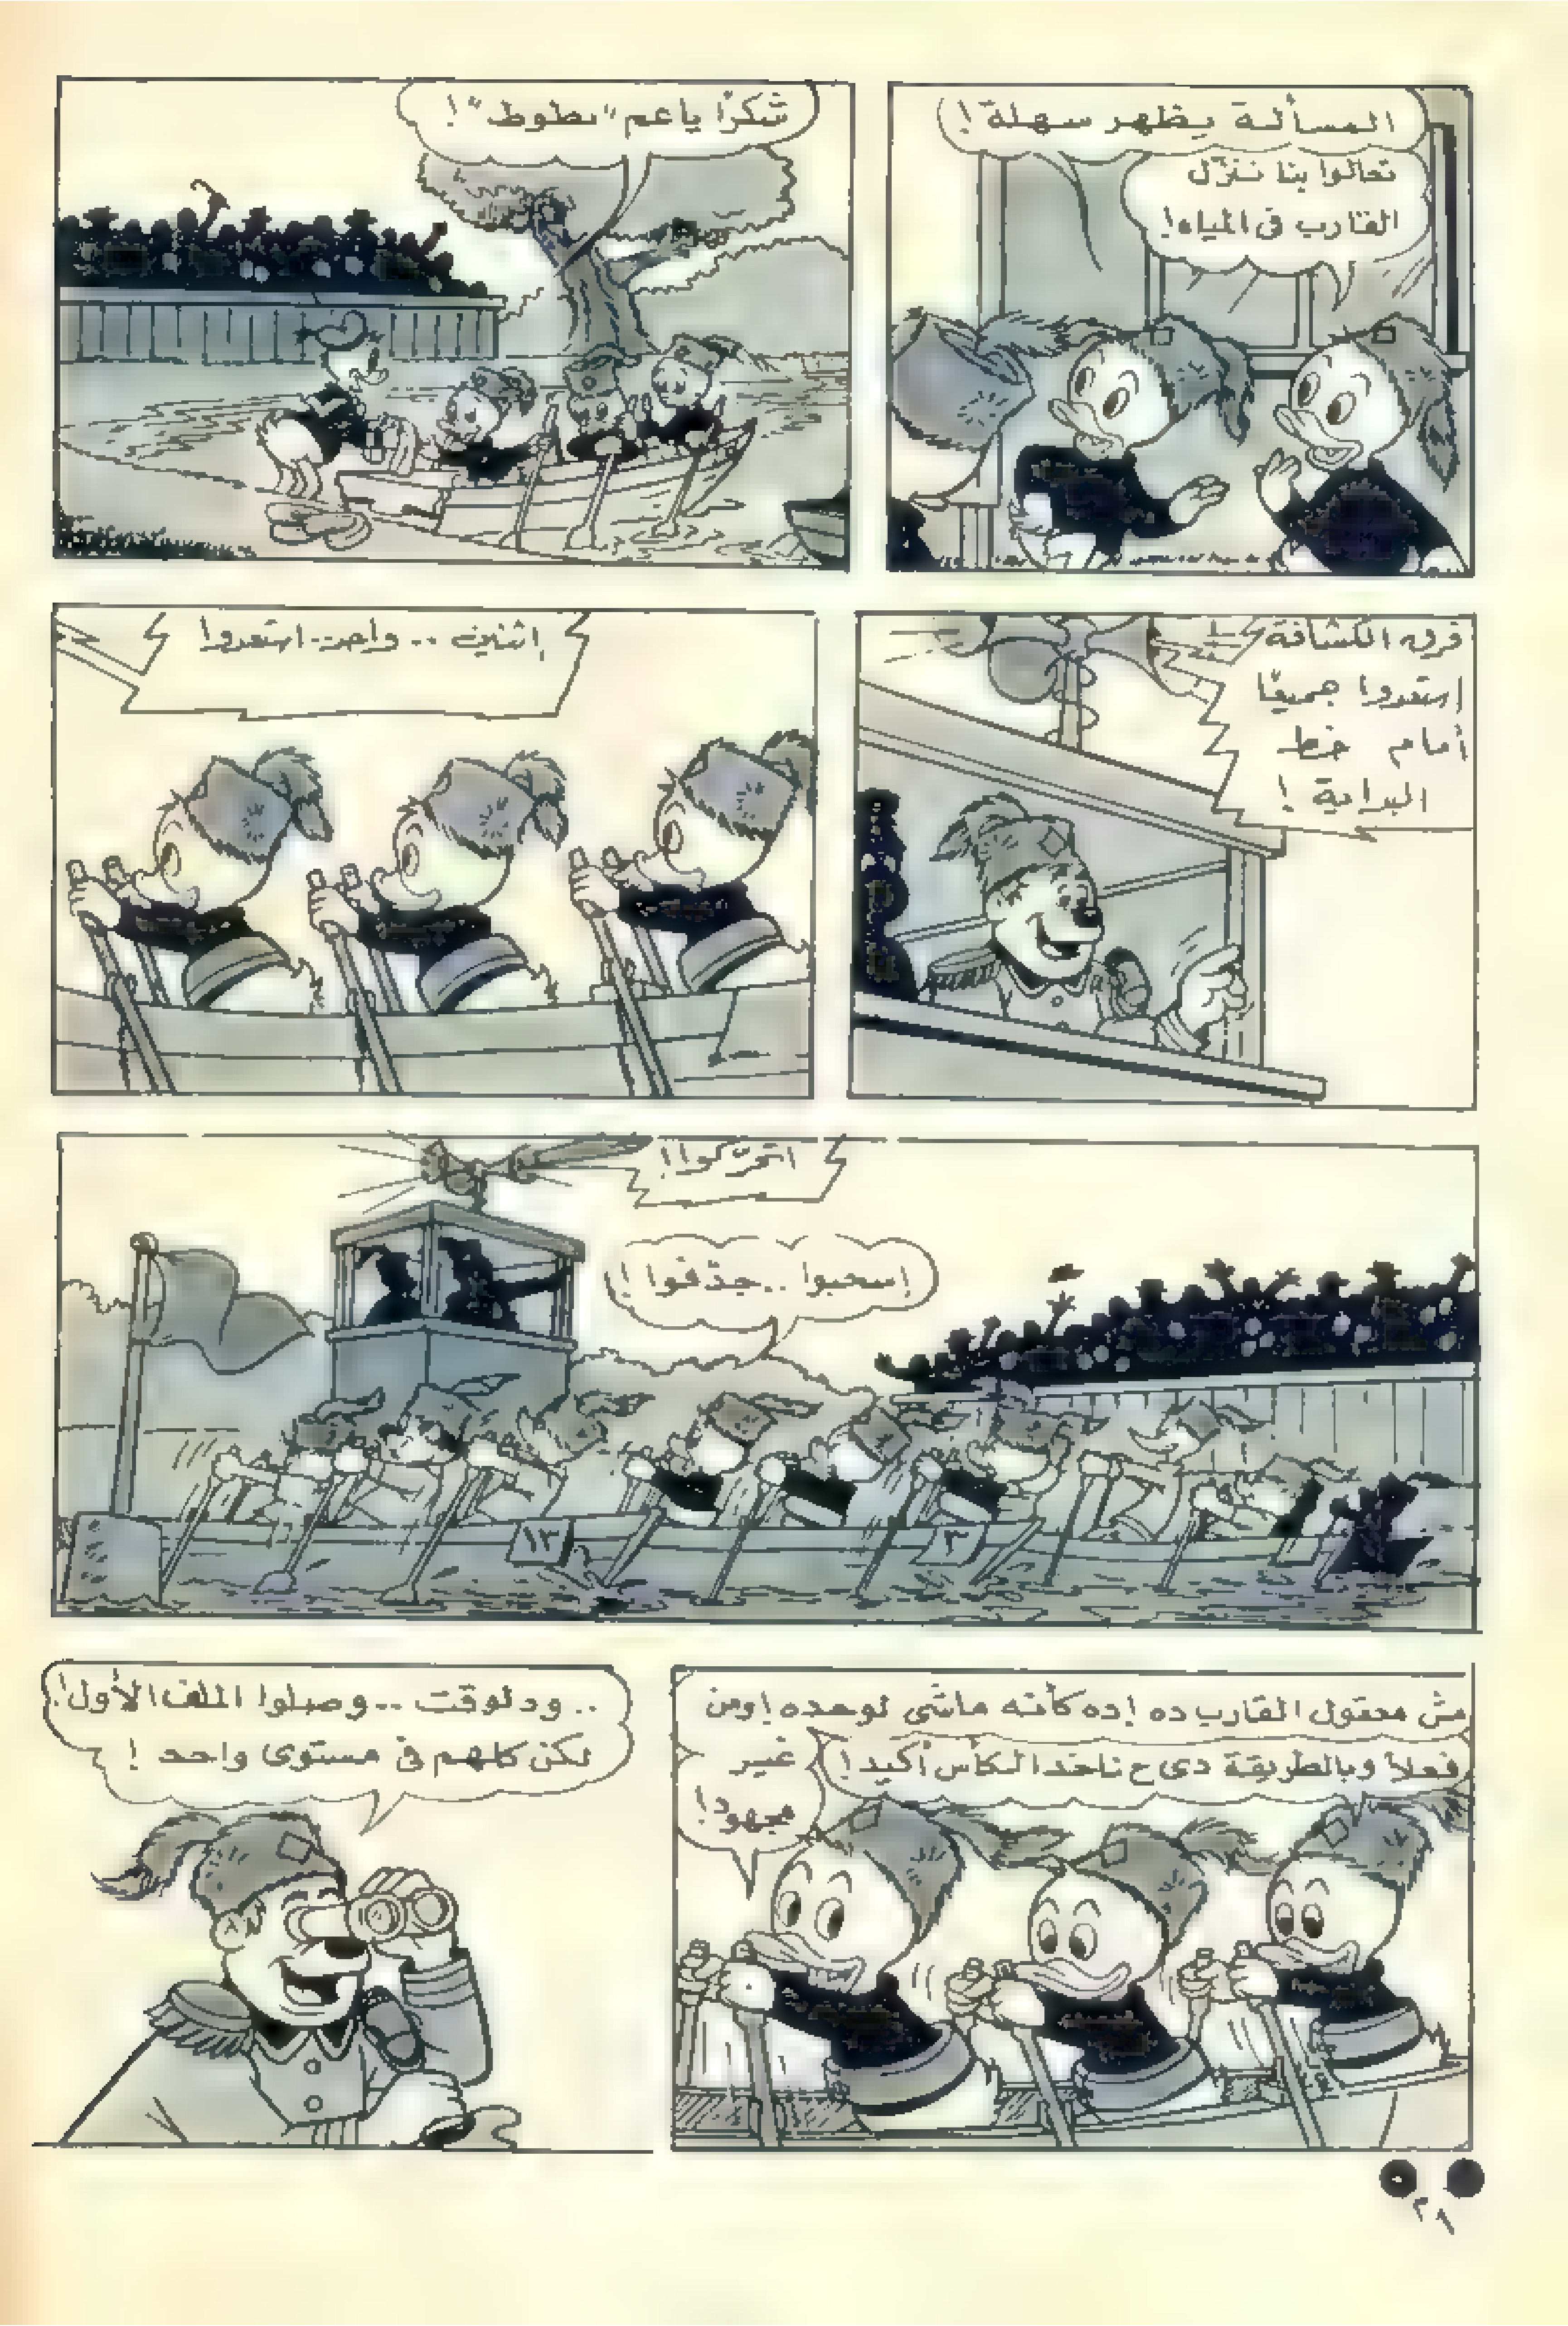 المسألة يظهر سهلة!
تعالوا بنا ننزّل
القارب فى المياه!
شكرًا ياعم "بطوط"!
فرق الكشافة
إستعدوا جميعًا
أمام خط
البداية!
إثنين .. واحد.. استعدوا
اتحرّكوا!
إسحبوا .. جدّفوا!
١٣
٣
مش معقول القارب ده! ده كأنه ماشى لوحده! ومن
غير
مجهود!
فعلاً وبالطريقة دى ح ناخد الكأس أكيد!
.. ودلوقت .. وصلوا الملف الأول!
لكن كلهم فى مستوى واحد!
٢١